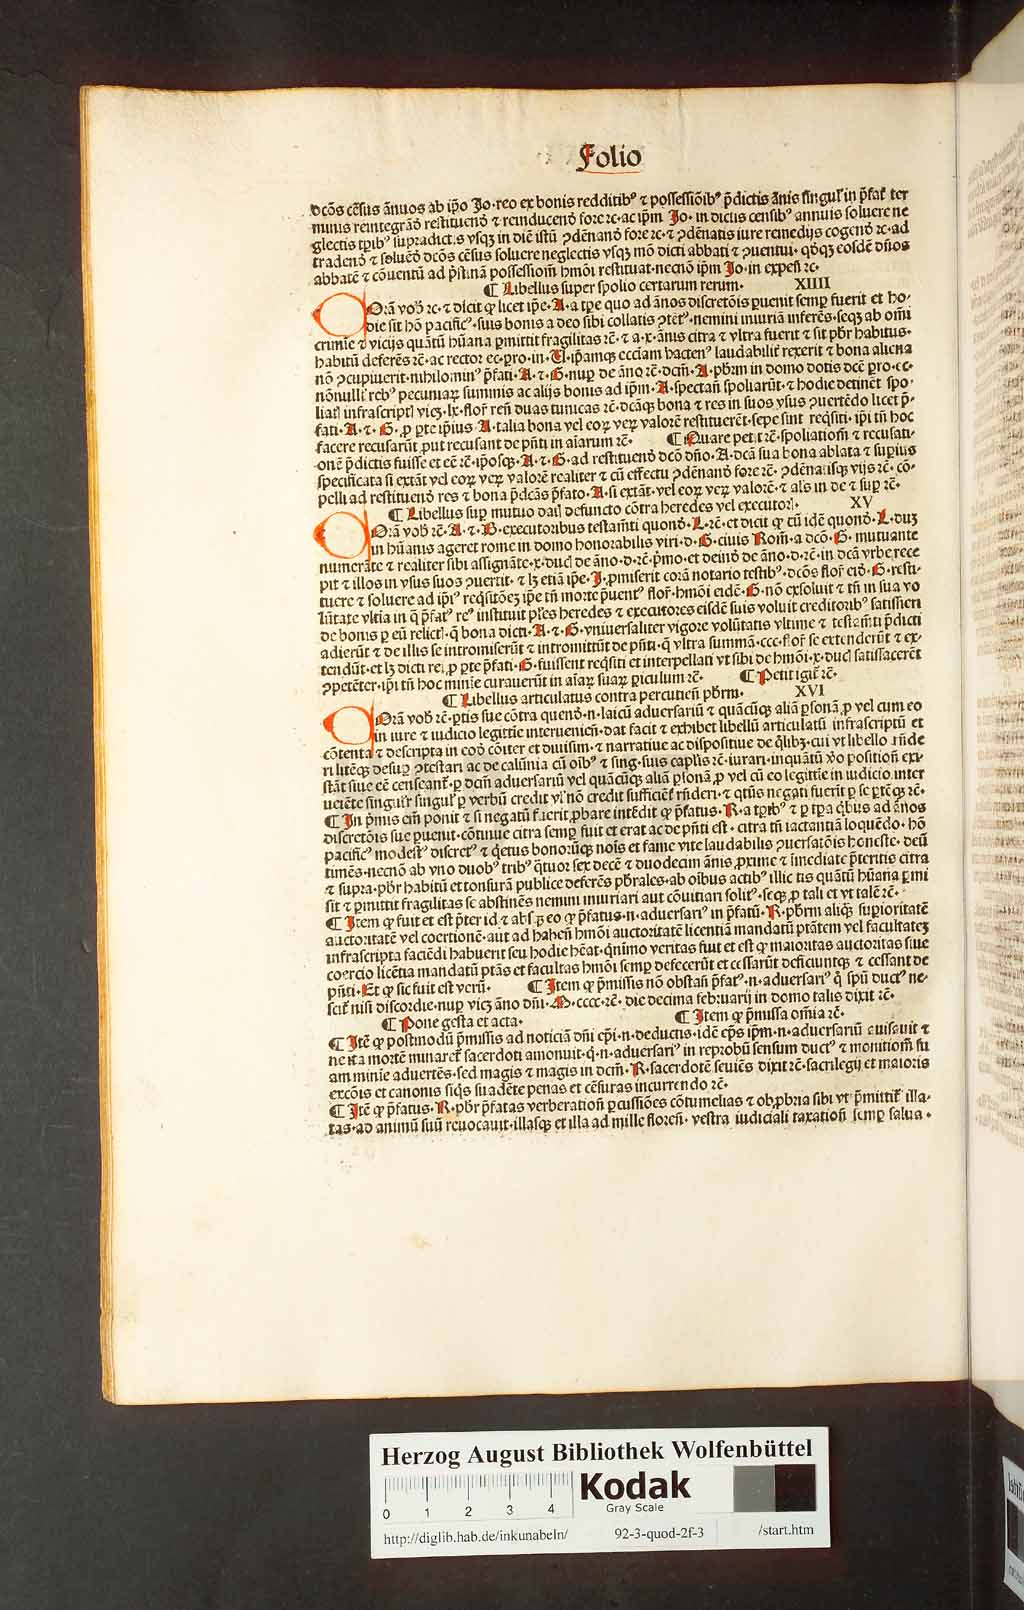 Folio
dcōs cēsus ānuos ab ip̄o Jo·reo ex bonis redditibꝰ ⁊ possessiōibꝰ p̄dictis ānis singul' in p̄fat̄ ter
minis reintegrādo restitueno ⁊ reinducendo fore ⁊c·ac ip̄m Jo·in dictis censibꝰ annuis soluere ne
glectis tpibꝰ supradictis vsqꝫ in diē istū ꝯdēnanō fore ⁊c·⁊ ꝯdēnatis iure remedijs cogenō ⁊c·ad
tradenō ⁊ soluēō dcōs cēsus soluere neglectis vsqꝫ mō dicti abbati ⁊ ꝯuentui·qōqꝫ eosdē dn̄os
abbatē ⁊ cōuentū ad p̄stinā possessiom̄ hmōi restituat·necnō ip̄m Jo·in expen̄ ⁊c·
¶ Libellus super spolio certarum rerum· XIIII
COrā vob̄ ⁊c·⁊ dicit ꝙ licet ip̄e·A·a tpe quo ad ānos discretōis ꝑuenit semꝑ fuerit et ho·
die sit hō pacificꝰ·suis bonis a deo sibi collatis ꝯtētꝰ·nemini iniuriā inferēs·seqꝫ ab om̄i
crimie ⁊ vicijs quātū hūana ꝑmittit fragilitas ⁊c̄·⁊ a·x·ānis citra ⁊ vltra fuerit ⁊ sit pb̄r habitus·
habitū deferēs ⁊c̄·ac rector ec·pro·in·U·ip̄amqꝫ ecc̄iam hactenꝰ laudabilit̄ rexerit ⁊ bona aliena
nō ꝯcupiuerit·nihilominꝰ p̄fati·A·⁊·G·nuꝑ de āno ⁊c̄·dcm̄·A·pb̄rm in domo dotis dcē ꝑro·ec·
nōnullꝭ rebꝰ pecuniaꝝ summis ac alijs bonis ad ip̄m·A·spectan̄ spoliarūt·⁊ hodie detinēt spo·
liaꝭ infrascriptꝭ vicꝫ·lx·flor̄ ren̄ duas tunicas ⁊c̄·dcāqꝫ bona ⁊ res in suos vsus ꝯuertēdo licet p̄·
fati·A·⁊·G·ꝓ ꝑte ip̄ius·A·talia bona vel eoꝝ veꝝ valorē restituerēt·sepe sint reqsiti·ip̄i tn̄ hoc
facere recusarūt ꝓut recusant de pn̄ti in aīarum ⁊c̄· ¶ Quare petit ⁊c̄·spoliatiom̄ ⁊ recusati·
onē p̄dictis fuisse et eē ⁊c̄·ip̄osqꝫ·A·⁊·G·ad restituenō dcō dn̄o·A·dcā sua bona ablata ⁊ suꝑius
specificata si extāt vel eoꝝ veꝝ valorē realiter ⁊ cū effectu ꝯdēnanō fore ⁊c̄·ꝯdēnatisqꝫ vijs ⁊c̄·cō·
pelli ad restituenō res ⁊ bona p̄dcās p̄fato·A·si extāt·vel eoꝝ veꝝ valorē·⁊ als in de ⁊ suꝑ ⁊c̄·
¶ Libellus suꝑ mutuo datꝭ defuncto cōtra heredes vel executorꝭ· XV
COrā vob̄ ⁊c̄·A·⁊·B·executoribus testam̄ti quonō·L·⁊c̄·et dicit ꝙ cū idē quonō·L·duꝫ
in hūanis ageret rome in domo honorabilis viri·d·G·ciuis Rom̄·a dcō·G·mutuante
numerāte ⁊ realiter sibi assignāte·x·ducꝭ de āno·d·⁊c̄·p̄mo·et deinō de āno·d·⁊c̄·in dcā vrbe rece
pit ⁊ illos in vsus suos ꝯuertit·⁊ lꝫ etiā ip̄e·J·ꝓmiserit corā notario testibꝰ·dcōs flor̄ eiō·G·resti·
tuere ⁊ soluere ad ip̄iꝰ reqsitōeꝫ ip̄e tn̄ morte ꝑuentꝰ flor̄·hmōi eidē·G·nō exsoluit ⁊ tn̄ in sua vo
lūtate vltia in q̄ p̄fatꝰ reꝰ instituit ꝑles heredes ⁊ executores eisdē suis voluit creditoribꝰ satisfieri
de bonis ꝑ eū relictꝭ·q̄ bona dicti·A·⁊·G·vniuersaliter vigore volūtatis vltime ⁊ testam̄ti p̄dicti
adierūt ⁊ de illis se intromiserūt ⁊ intromittūt de pn̄ti·q̄ vltra summā·ccc·flor̄ se extenderūt ⁊ ex·
tendūt·et lꝫ dicti rei ꝓ ꝑte p̄fati·G·fuissent reqsiti et interpellati vt sibi de hmōi·x·ducꝭ satisfacerēt
ꝯpetēter·ip̄i tn̄ hoc minīe curauerūt in aīaꝝ suaꝝ ꝑiculum ⁊c̄· ¶ Petit igit̄ ⁊c̄·
¶ Libellus articulatus contra percutien̄ pb̄rm· XVI
COrā vob̄ ⁊c̄·ꝑtis sue cōtra quenō·n·laicū aduersariū ⁊ quācūqꝫ aliā ꝑsonā ꝓ vel cum eo
in iure ⁊ iudicio legittīe interuenien̄·dat facit ⁊ exhibet libellū articulatū infrascriptū et
cōtenta ⁊ descripta in eoō cōiter et diuisim·⁊ narratiue ac dispositiue de qlibꝫ·cui vt libello rn̄de
ri litēqꝫ desuꝑ ꝯtestari ac de calūnia cū oībꝰ ⁊ sing·suis capl'is ⁊c̄·iurari·inquātū v̄o position̄ exi·
stāt siue eē censeant̄·ꝑ dcm̄ aduersariū vel quācūqꝫ aliā ꝑsonā ꝓ vel cū eo legittīe in iudicio inter
ueiēte singul'r singul' ꝑ verbū credit vl' nō credit sufficiēt̄ rn̄deri·⁊ qtūs negati fuerīt ꝑ se ꝑtēqꝫ ⁊c̄·
¶ In p̄mis em̄ ponit ⁊ si negatū fuerit ꝓbare intēdit ꝙ p̄fatus·R·a tp̄ribꝰ ⁊ ꝑ tpa qbus ad ānos
discretōis sue ꝑuenit·cōtinue citra semꝑ fuit et erat ac de pn̄ti est·citra tn̄ iactantiā loquēdo·hō
pacificꝰ modestꝰ discretꝰ ⁊ qetus bonorūqꝫ nois et fame vite laudabilis ꝯuersatōis honeste·deū
timēs·necnō ab vno duobꝰ tribꝰ qtuor sex decē ⁊ duodecim ānis ꝓxime ⁊ īmediate p̄teritis citra
⁊ supra·pb̄r habitū et tonsurā publice deferēs pb̄rales·ab oībus actibꝰ illicitis quātū hūana ꝑmi
sit ⁊ ꝑmittit fragilitas se abstinēs nemini iniuriari aut cōuitiari solitꝰ·seqꝫ ꝓ tali et vt talē ⁊c̄·
¶ Item ꝙ fuit et est p̄ter id ⁊ absqꝫ eo ꝙ p̄fatus·n·aduersariꝰ in p̄fatū·R·pb̄rm aliqꝫ suꝑioritatē
auctoritatē vel coertionē·aut ad haben̄ hmōi auctoritatē licentiā mandatū ptātem vel facultateꝫ
infrascripta faciēdi habuerit seu hodie hēat·qnimo veritas fuit et est ꝙ maioritas auctoritas siue
coercio licētia mandatū ptās et facultas hmōi semꝑ defecerūt et cessarūt deficiuntqꝫ ⁊ cessant de
pn̄ti·Et ꝙ sic fuit est verū· ¶ Item ꝙ p̄missis nō obstan̄ p̄fatꝰ·n·aduersariꝰ q̄ spū ductꝰ ne·
scit̄ nisi discordie·nuꝑ vicꝫ āno dn̄i·M·cccc·⁊c̄·die decima februarij in domo talis dixit ⁊c̄·
¶ Pone gesta et acta· ¶ Item ꝙ p̄missa om̄ia ⁊c̄·
¶ Itē ꝙ postmodū p̄missis ad noticiā dn̄i ep̄i·n·deductis·idē ep̄s ip̄m·n·aduersariū euisauit ⁊
ne ita mortē minaret̄ sacerdoti amonuit·q·n·aduersariꝰ in reprobū sensum ductꝰ ⁊ monitiom̄ su
am minīe aduertēs·sed magis ⁊ magis in dcm̄·R·sacerdotē seuiēs dixit ⁊c̄·sacrilegij et maioris
excōis et canonis siqs suadēte penas et cēsuras incurrendo ⁊c̄·
¶ Itē ꝙ p̄fatus·R·pb̄r p̄fatas verberation̄ ꝑcussiōes cōtumelias ⁊ obꝓbria sibi vt p̄mittit̄ illa·
tas·ad animū suū reuocauit·illasqꝫ et illa ad mille floren̄·vestra iudiciali taxation̄ semꝑ salua·
Herzog August Bibliothek Wolfenbüttel
0 1 2 3 4
Kodak
Gray Scale
http://diglib.hab.de/inkunabeln/ 92-3-quod-2f-3 /start.htm